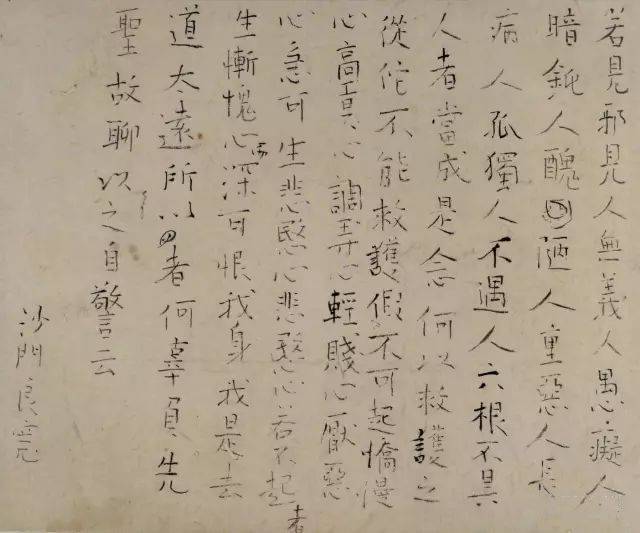 若見邪見人無義人愚癡人
暗鈍人醜陋人重惡人長
病人孤獨人不遇人六根不具
人者當成是念何以救護之
從佗不能救護假不可起憍慢
心高貢心調弄心輕賤心厭惡
心急可生悲愍心悲愍心若不起者
生慚愧心深可恨我身我是去
道太遠所以者何辜負先
聖故聊以之自警云
沙門良寬